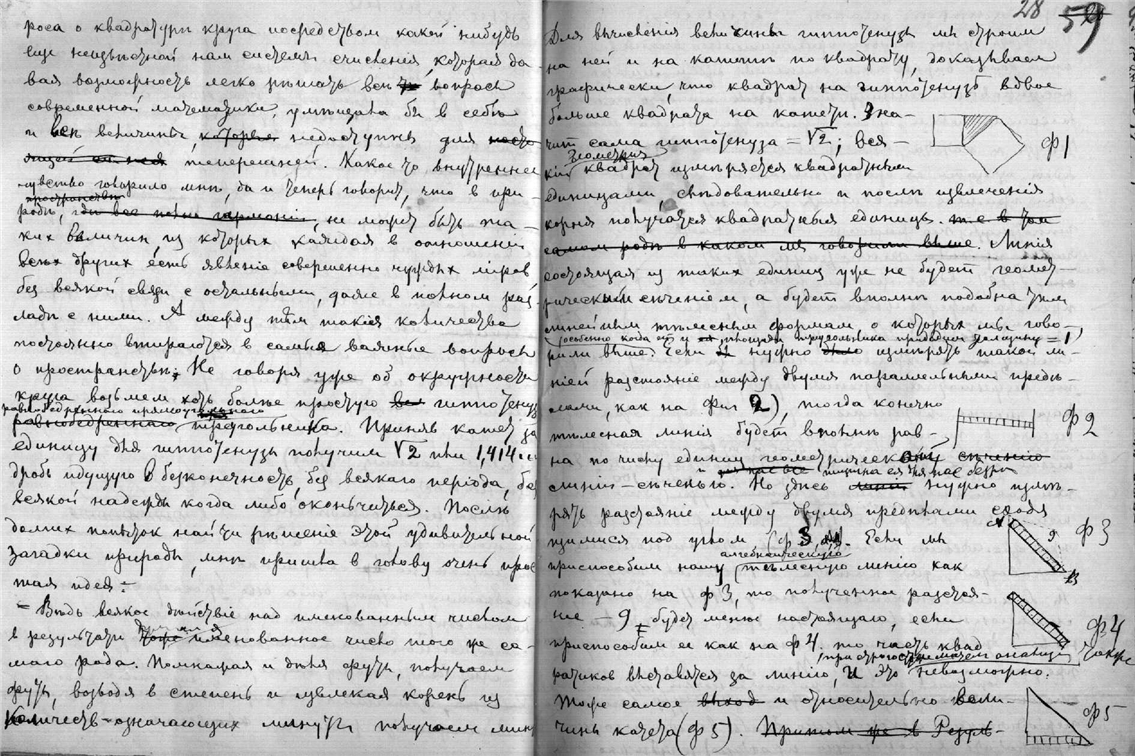 роса о квадратуры круга посредством какой нибудь
еще неизвѣстной нам системы счисления, которая да-
вая возможность легко рѣшать всѣ вопросы
современной математики, умѣщала бы в себѣ
и всѣ величины, которые недоступны для
теперешней. Какое то внутреннее
чувство говорило мнѣ, да и теперь говорит, что в при-
пространствѣ
родѣ, гдѣ все полно гармоніи, не может быть та-
ких величин из которых каждая в отношеніи
всѣх других есть явленіе совершенно чуждых міров
без всякой связи с остальными, даже в полном раз-
ладѣ с ними. А между тѣм такія количества
постоянно втираются в самые важные вопросы
о пространствѣ. Не говоря уже об окружности
круга возьмем хоть болѣе простую гиппотенузу
равнобедренного прямоугольного
равностороннаго треугольника. Приняв катет за
единицу для гиппотенузы получим √2 или 1,414
дробь идущую в безконечность, без всякаго періода, бе
всякой надежды когда либо окончиться. Послѣ
долгих попыток найти рѣшеніе этой удивительной
загадки природы, мнѣ пришла в голову очень прос
тая идея:
= Вѣдь всякое дѣйствіе над именованным числом
в результатѣ именованное число того же са-
маго рода. Помножая и дѣля фунты, получаем
фунты, возводя в степень и извлекая корень из
количеств означающих минуты получаем мин
28 59
Для вычисленія величины гиппотенузы мы строим
на ней и на катеты по квадрату, доказываем
графически, что квадрат на гиппотенузѣ вдвое
больше квадрата на катеты. Зна-
чит сама гиппотенуза = √2; вся-
геометрия
кій квадрат измѣряется квадратными
ф 1
единицами слѣдовательно и послѣ извлеченія
корня получатся квадратныя единицы. т е в том
самом родѣ в каком мы говорили выше. Линія
состоящая из таких единиц уже не будет геомет-
рическим сѣченіем, а будет вполнѣ подобна тѣм
линейным тѣлесным формам, о которых мы гово-
рили выше. Если нужно измѣрить такой ли-
ніей разстояніе между двумя параллельными предѣ-
лами, как на фиг 2), тогда конечно
тѣлесная линія будет вполнѣ рав-
ф 2
на по числу единиц геометрическому сѣченію
линіи-сѣченью. Но здѣсь нужно измѣ-
рять разстояніе между двумя предѣлами сходя
щимися под углом (ф 3 и 4). Если мы
алгебраическую
приспособим нашу тѣлесную линію как
A 9 B ф 3
показано на ф 3, то полученное разстоя-
ніе — 9 будет менше настоящаго, если
приспособим ее как на ф 4. то часть квад
ф 4
ратиков выставятся за линію, и это невозможно.
Тоже самое и относительно вели-
чины катета (ф 5). Притом же в Резуль-
ф 5